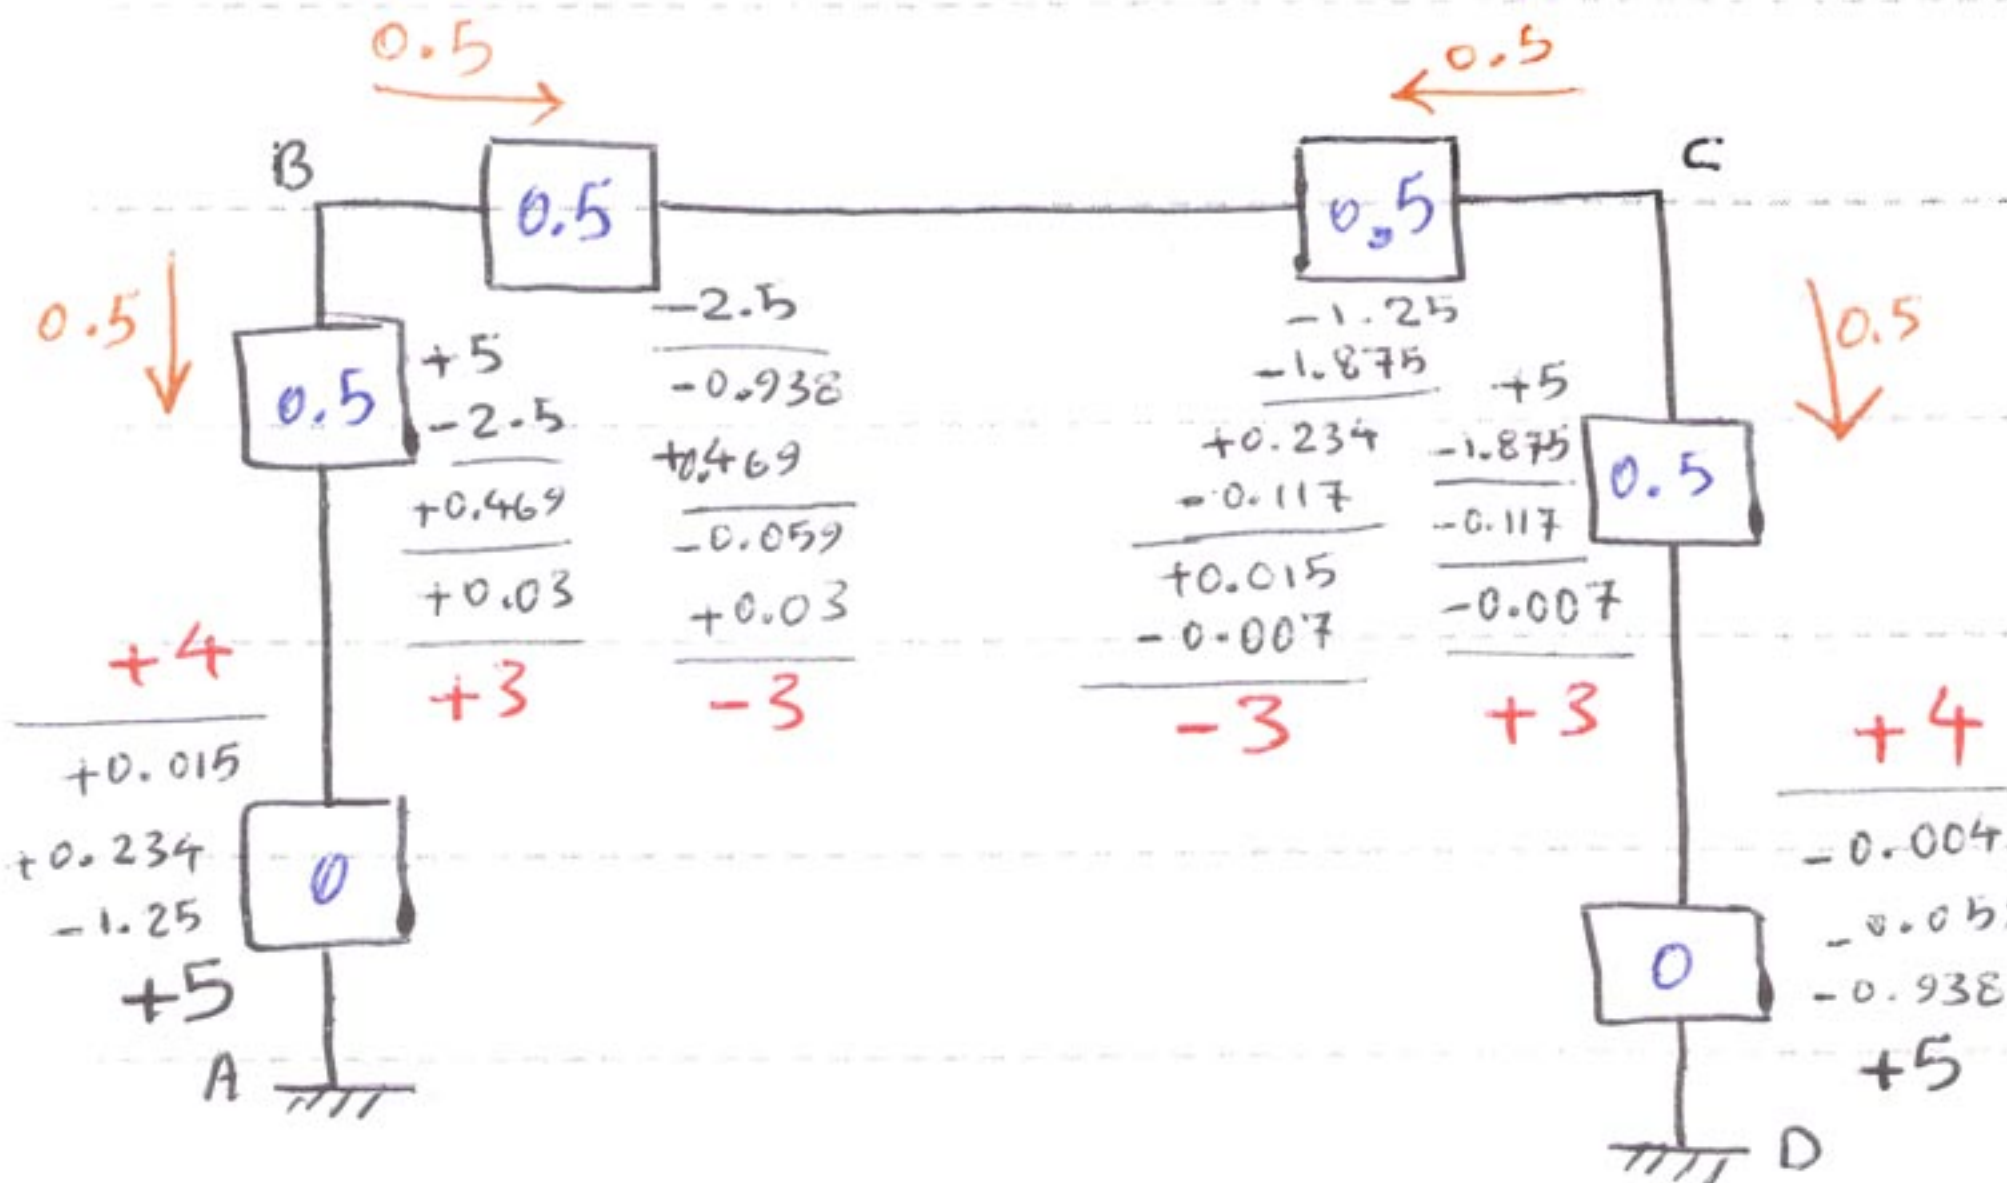 0.5
0.5
B
0.5
0.5
C
0.5
0.5
+5
-2.5
+0.469
+0.03
+3
-2.5
-0.938
+0.469
-0.059
+0.03
-3
-1.25
-1.875
+0.234
-0.117
+0.015
-0.007
-3
+5
-1.875
-0.117
-0.007
+3
0.5
0.5
+4
+0.015
+0.234
-1.25
+5
0
A
+4
-0.004
-0.05
-0.938
+5
0
D